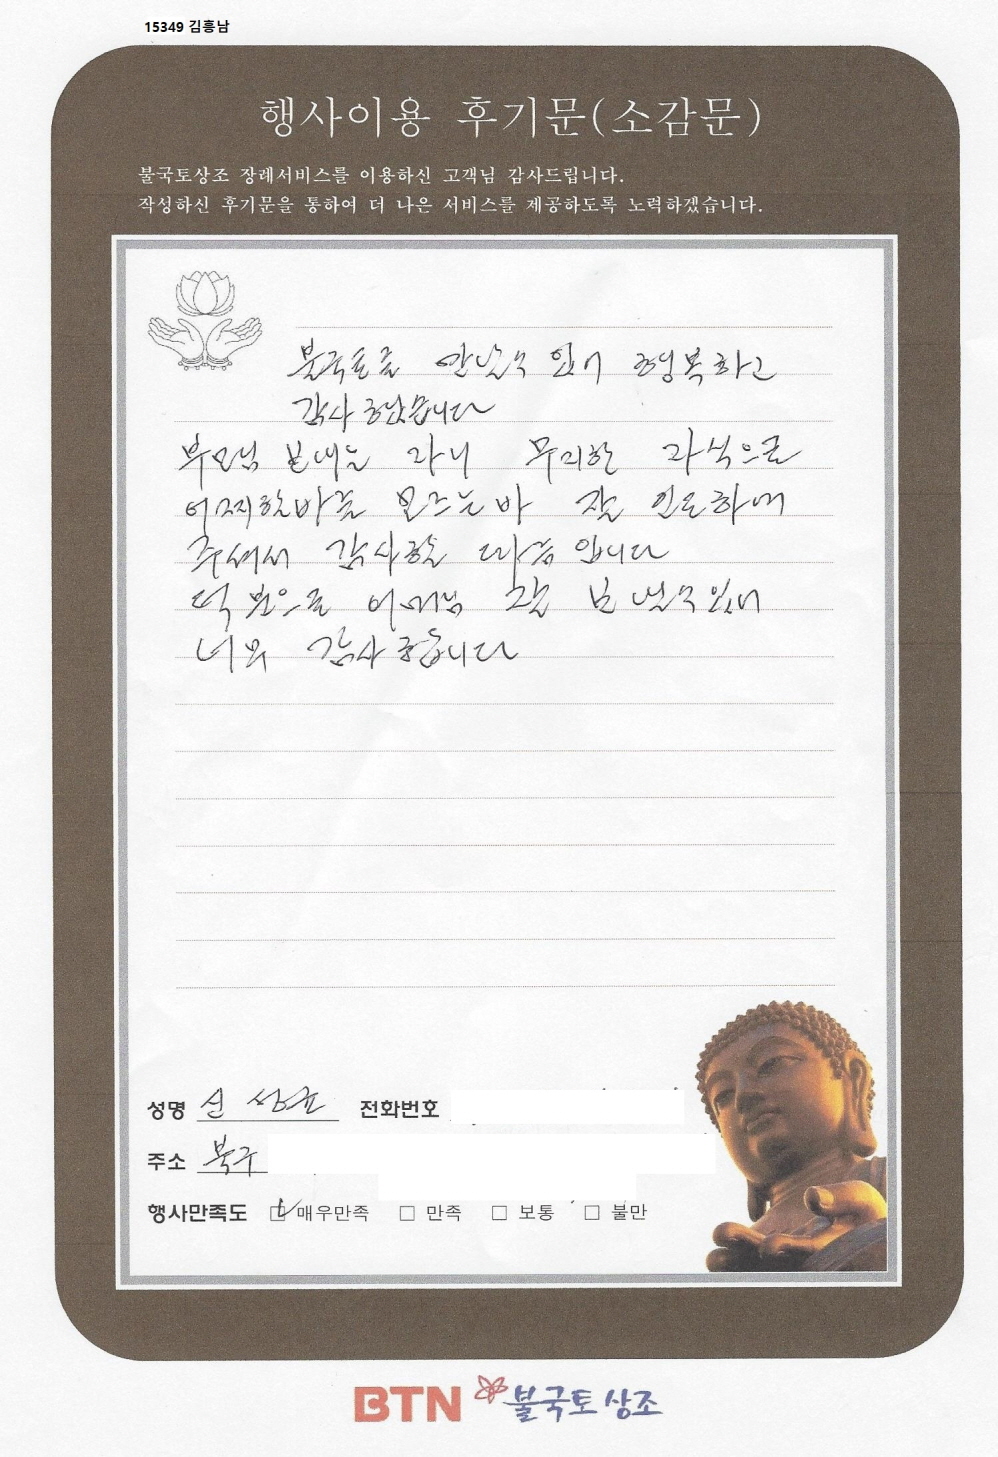 15349 김흥남
행사이용 후기문(소감문)
불국토상조 장례서비스를 이용하신 고객님 감사드립니다.
작성하신 후기문을 통하여 더 나은 서비스를 제공하도록 노력하겠습니다.
불국토를 만날수 있어 행복하고
감사했습니다
부모님 보내는 라니 무지한 자식으로
어찌할바를 모르는바 잘 인도하여
주셔서 감사할 따름 입니다
덕분으로 어머님 잘 보낼수있어
너무 감사합니다
성명 신상균 전화번호
주소 북구
행사만족도 □ 매우만족 □ 만족 □ 보통 □ 불만
BTN 불국토상조